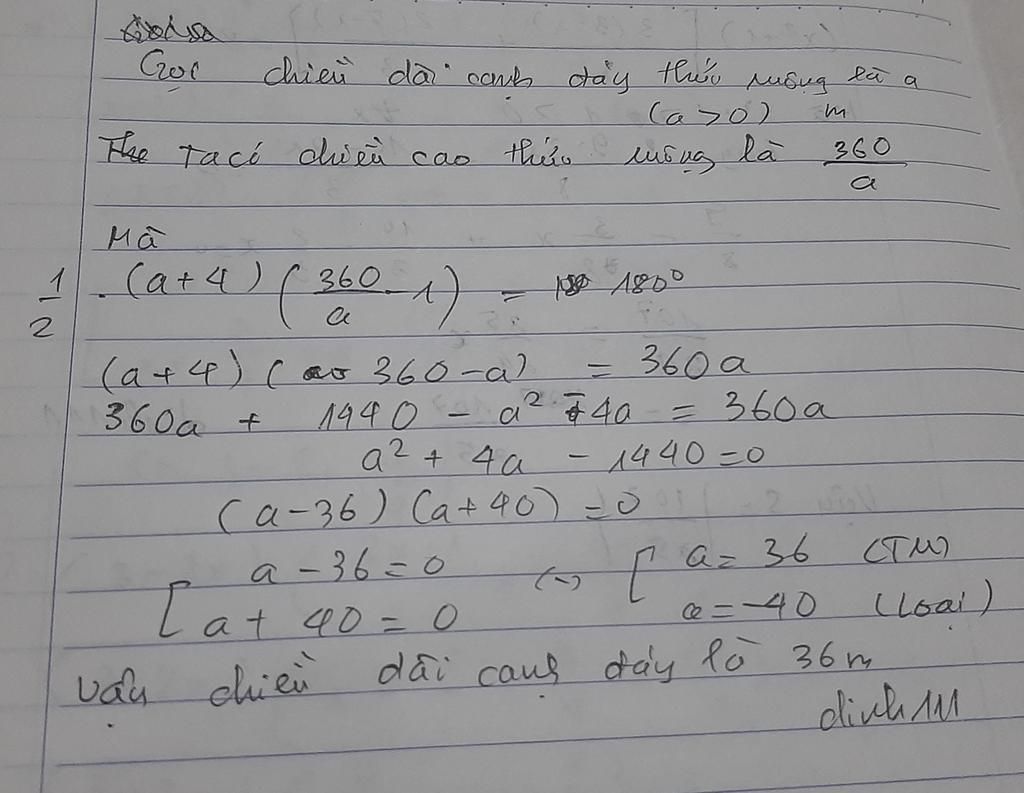 Gọi chiều dài cạnh đáy thửa ruộng là a
(a > 0) m
Ta có chiều cao thửa ruộng là 360/a
Mà
1/2 . (a + 4) (360/a - 1) = 180°
(a + 4) ( 360 - a) = 360a
360a + 1440 - a² - 4a = 360a
a² + 4a - 1440 = 0
(a - 36) (a + 40) = 0
[ a - 36 = 0 (-) [ a = 36 (TM)
a + 40 = 0 a = -40 (loại)
Vậy chiều dài cạnh đáy là 36m